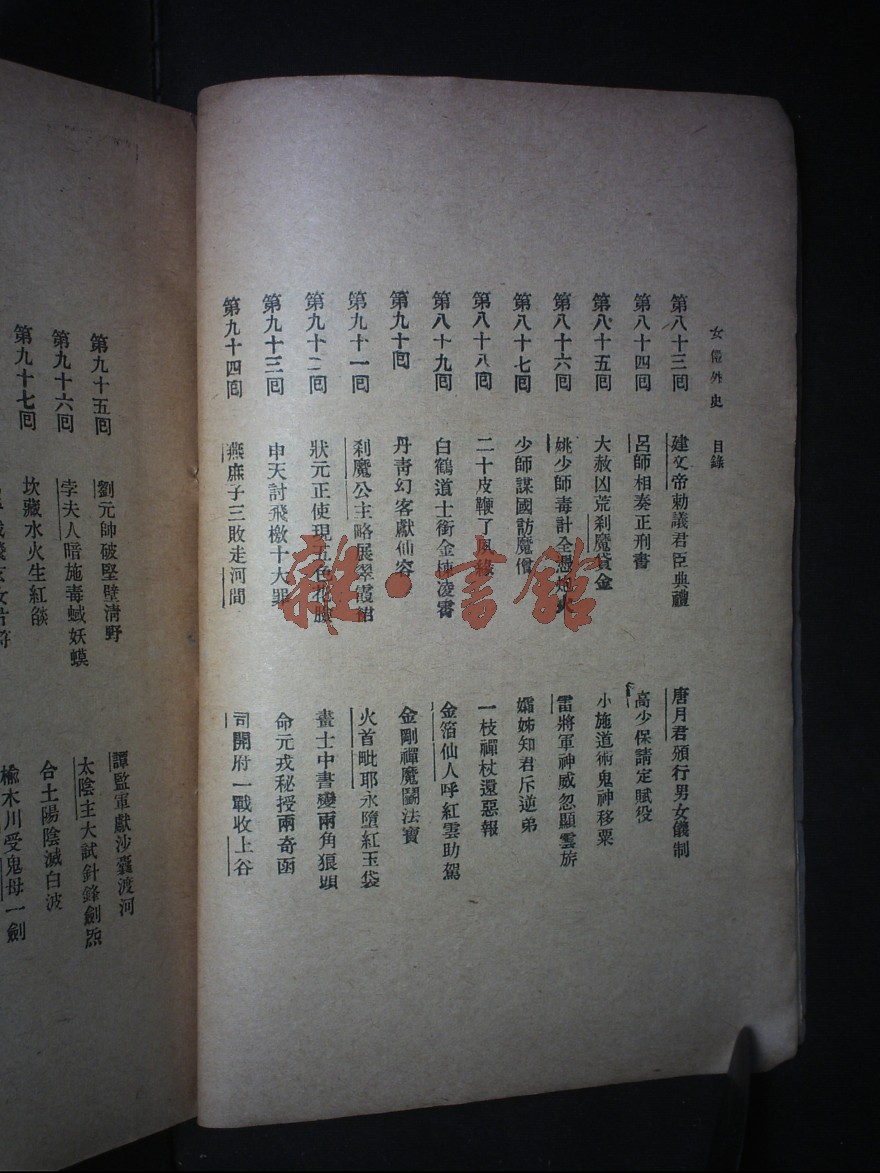 女僊外史 目錄
第八十三囘 建文帝勅議君臣典禮 唐月君頒行男女儀制
第八十四囘 呂師相奏正刑書 高少保請定賦役
第八十五囘 大赦凶荒剎魔貸金 小施道術鬼神移粟
第八十六囘 姚少師毒計全憑炮火 雷將軍神威忽顯雲旂
第八十七囘 少師謀國訪魔僧 孀姊知君斥逆弟
第八十八囘 二十皮鞭了夙緣 一枝禪杖還惡報
第八十九囘 白鶴道士銜金棟凌霄 金箔仙人呼紅雲助駕
第九十囘 丹靑幻客獻仙容 金剛禪魔鬭法寶
第九十一囘 剎魔公主略展翠霞裙 火首毗耶永墮紅玉袋
第九十二囘 狀元正使現五色花臉 畫士中書變兩角狼頭
第九十三囘 申天討飛檄十大罪 命元戎秘授兩奇函
第九十四囘 燕庶子三敗走河間 司開府一戰收上谷
第九十五囘 劉元帥破堅壁淸野 譚監軍獻沙囊渡河
第九十六囘 孛夫人暗施毒蜮妖蟆 太陰主大試針鋒劍炁
第九十七囘 坎藏水火生紅燄 合土陽陰滅白波
榆木川受鬼母一劍
雜·書館